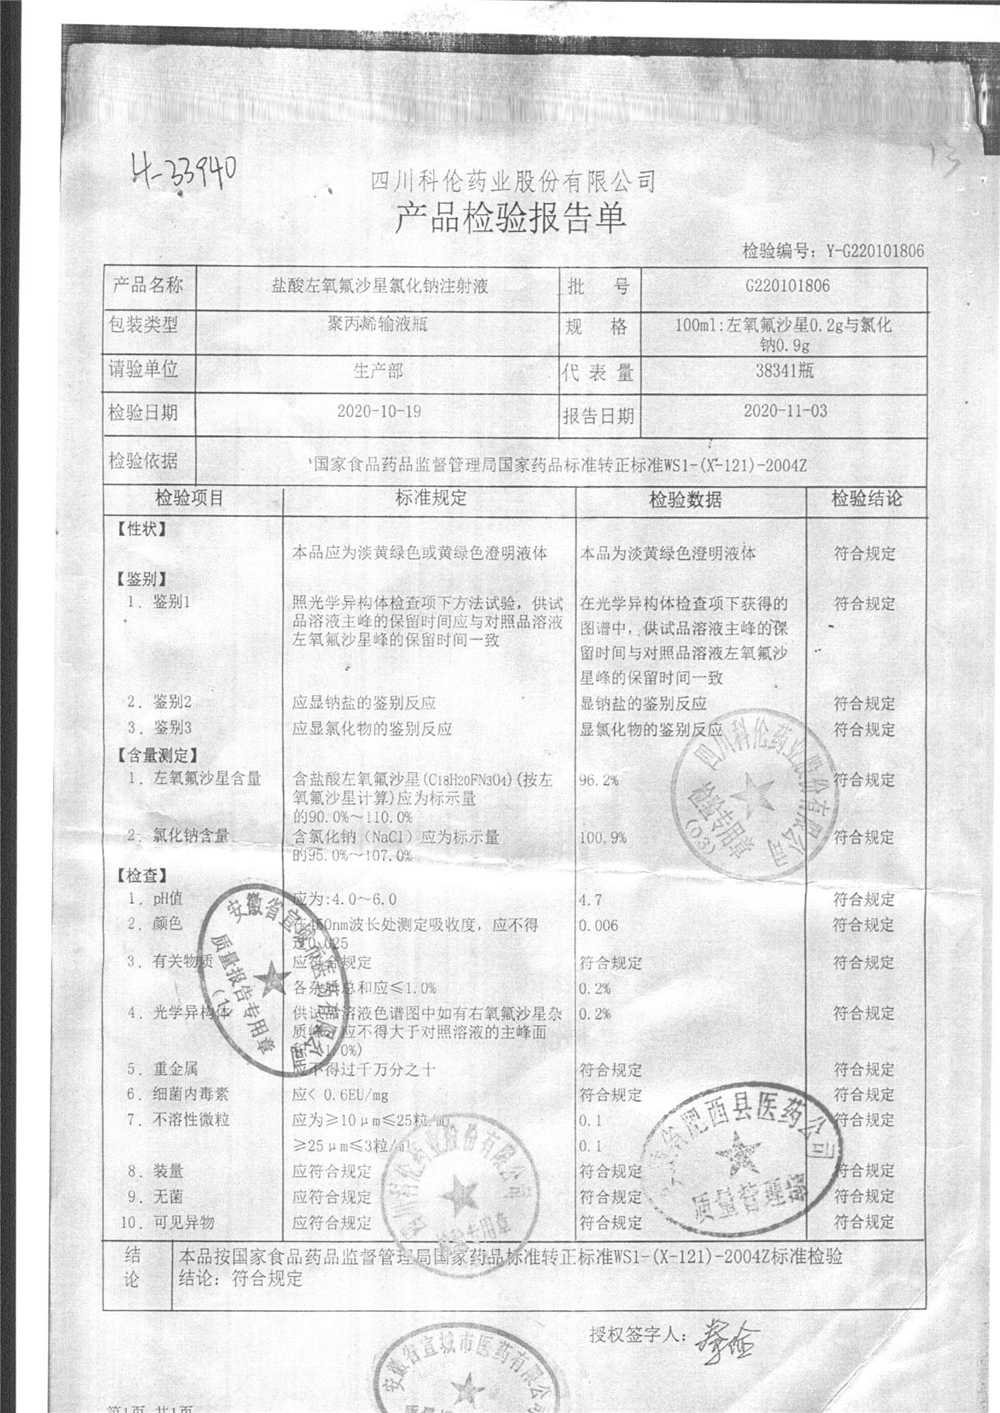 4-33940
13
四川科伦药业股份有限公司
产品检验报告单
检验编号：Y-G220101806
产品名称 盐酸左氧氟沙星氯化钠注射液 批 号 G220101806
包装类型 聚丙烯输液瓶 规 格 100ml:左氧氟沙星0.2g与氯化
钠0.9g
请验单位 生产部 代 表 量 38341瓶
检验日期 2020-10-19 报告日期 2020-11-03
检验依据 国家食品药品监督管理局国家药品标准转正标准WS1-(X-121)-2004Z
检验项目 标准规定 检验数据 检验结论
【性状】
本品应为淡黄绿色或黄绿色澄明液体 本品为淡黄绿色澄明液体 符合规定
【鉴别】
1. 鉴别1 照光学异构体检查项下方法试验，供试 在光学异构体检查项下获得的 符合规定
品溶液主峰的保留时间应与对照品溶液 图谱中，供试品溶液主峰的保
左氧氟沙星峰的保留时间一致 留时间与对照品溶液左氧氟沙
星峰的保留时间一致
2. 鉴别2 应显钠盐的鉴别反应 显钠盐的鉴别反应 符合规定
3. 鉴别3 应显氯化物的鉴别反应 显氯化物的鉴别反应 符合规定
【含量测定】
1. 左氧氟沙星含量 含盐酸左氧氟沙星(C18H20FN3O4)(按左 96.2% 符合规定
氧氟沙星计算)应为标示量
的90.0%～110.0%
2. 氯化钠含量 含氯化钠（NaCl）应为标示量 100.9% 符合规定
的95.0%～107.0%
【检查】
1. pH值 应为:4.0～6.0 4.7 符合规定
2. 颜色 在450nm波长处测定吸收度，应不得 0.006 符合规定
过0.025
3. 有关物质 应符合规定 符合规定 符合规定
各杂质总和应≤1.0% 0.2%
4. 光学异构体 供试品溶液色谱图中如有右氧氟沙星杂 0.2% 符合规定
质峰，应不得大于对照溶液的主峰面
(1.0%)
5. 重金属 应不得过千万分之十 符合规定 符合规定
6. 细菌内毒素 应< 0.6EU/mg 符合规定 符合规定
7. 不溶性微粒 应为≥10μm≤25粒/ml 0.1 符合规定
≥25μm≤3粒/ml 0.1
8. 装量 应符合规定 符合规定 符合规定
9. 无菌 应符合规定 符合规定 符合规定
10. 可见异物 应符合规定 符合规定 符合规定
结论 本品按国家食品药品监督管理局国家药品标准转正标准WS1-(X-121)-2004Z标准检验
结论：符合规定
授权签字人：
四川科伦药业股份有限公司
检验专用章
(03)
安徽省宣城市医药有限公司
质量报告专用章
(1)
四川科伦药业股份有限公司
检验专用章
肥西县医药公司
质量管理
安徽省宣城市医药有限公司
第1页 共1页